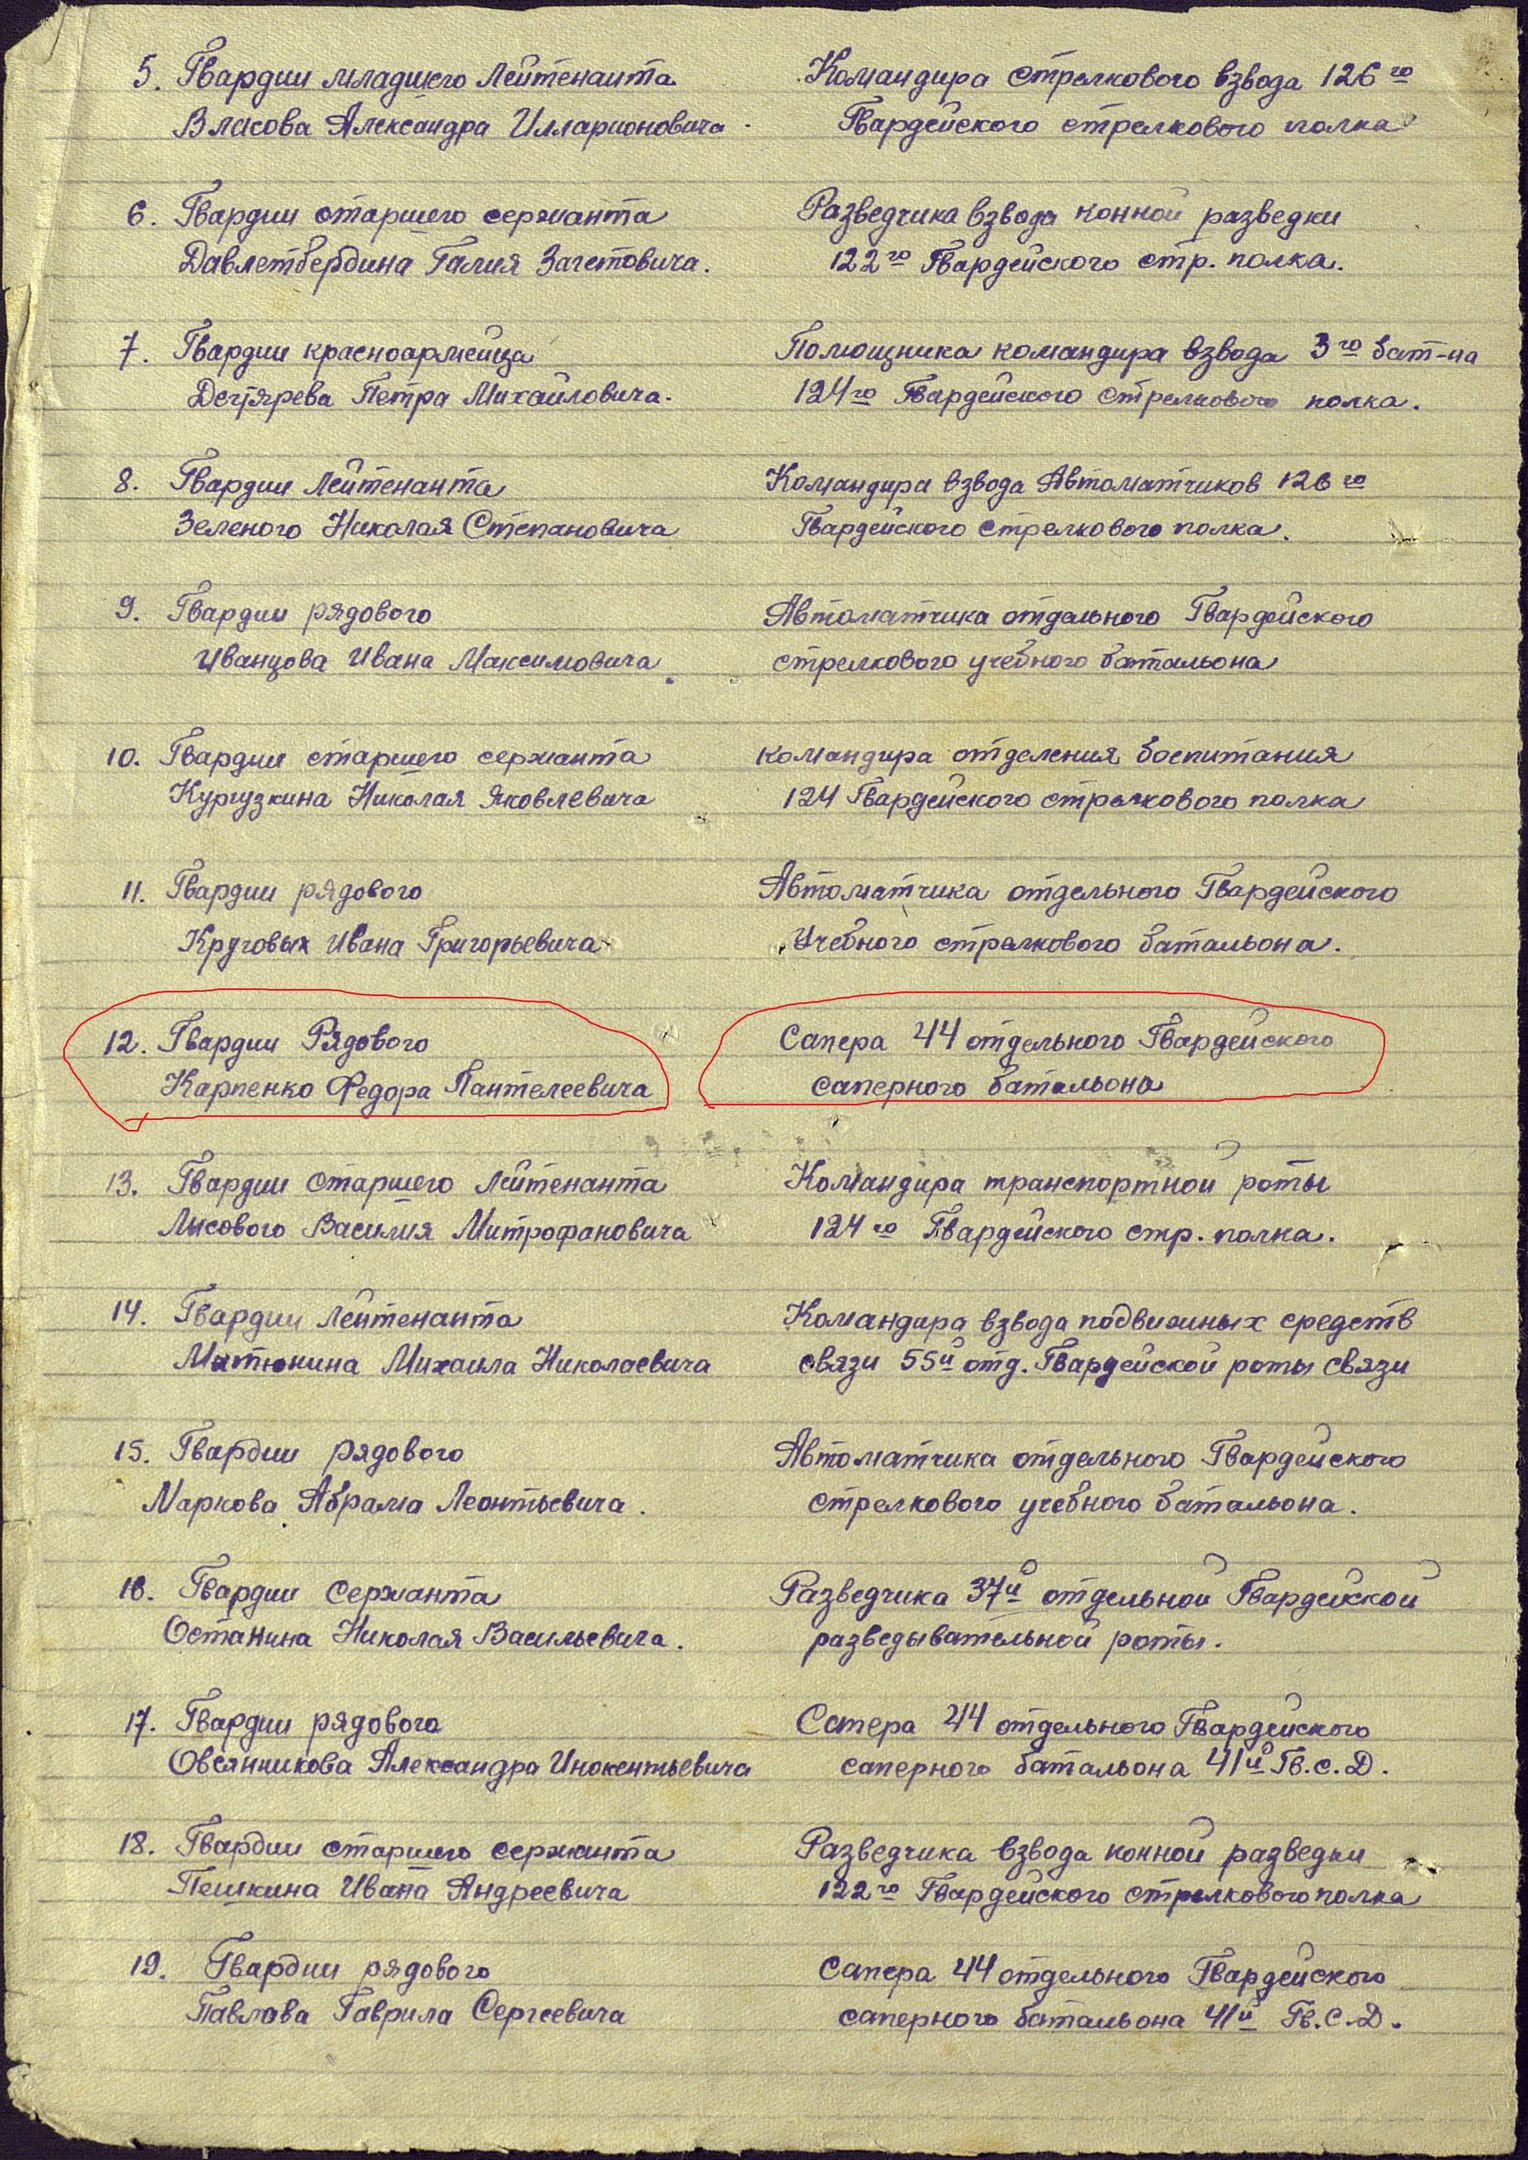 5. Гвардии младшего Лейтенанта Командира стрелкового взвода 126го
Власова Александра Илларионовича. Гвардейского стрелкового полка
6. Гвардии старшего сержанта Разведчика взвода конной разведки
Давлетбердина Галия Загетовича. 122го Гвардейского стр. полка.
7. Гвардии красноармейца Помощника командира взвода 3го бат-на
Дегтярева Петра Михайловича. 124го Гвардейского стрелкового полка.
8. Гвардии Лейтенанта Командира взвода Автоматчиков 126го
Зеленого Николая Степановича Гвардейского стрелкового полка.
9. Гвардии рядового Автоматчика отдельного Гвардейского
Иванцова Ивана Максимовича. стрелкового учебного батальона
10. Гвардии старшего сержанта командира отделения боепитания
Кургузкина Николая Яковлевича 124 Гвардейского стрелкового полка
11. Гвардии рядового Автоматчика отдельного Гвардейского
Круговых Ивана Григорьевича Учебного стрелкового батальона.
12. Гвардии Рядового Сапера 44 отдельного Гвардейского
Карпенко Федора Пантелеевича саперного батальона
13. Гвардии Старшего Лейтенанта Командира транспортной роты
Лисового Василия Митрофановича 124го Гвардейского стр. полка.
14. Гвардии Лейтенанта Командира взвода подвижных средств
Митюнина Михаила Николаевича связи 55й отд. Гвардейской роты связи
15. Гвардии рядового Автоматчика отдельного Гвардейского
Маркова Абрама Леонтьевича. стрелкового учебного батальона.
16. Гвардии Сержанта Разведчика 37й отдельной Гвардейской
Останина Николая Васильевича. разведывательной роты.
17. Гвардии рядового Сапера 44 отдельного Гвардейского
Овсянникова Александра Инокентьевича саперного батальона 41й Гв.С.Д.
18. Гвардии старшего сержанта Разведчика взвода конной разведки
Пешкина Ивана Андреевича 122го Гвардейского стрелкового полка
19. Гвардии рядового Сапера 44 отдельного Гвардейского
Павлова Гаврила Сергеевича саперного батальона 41й Гв.С.Д.